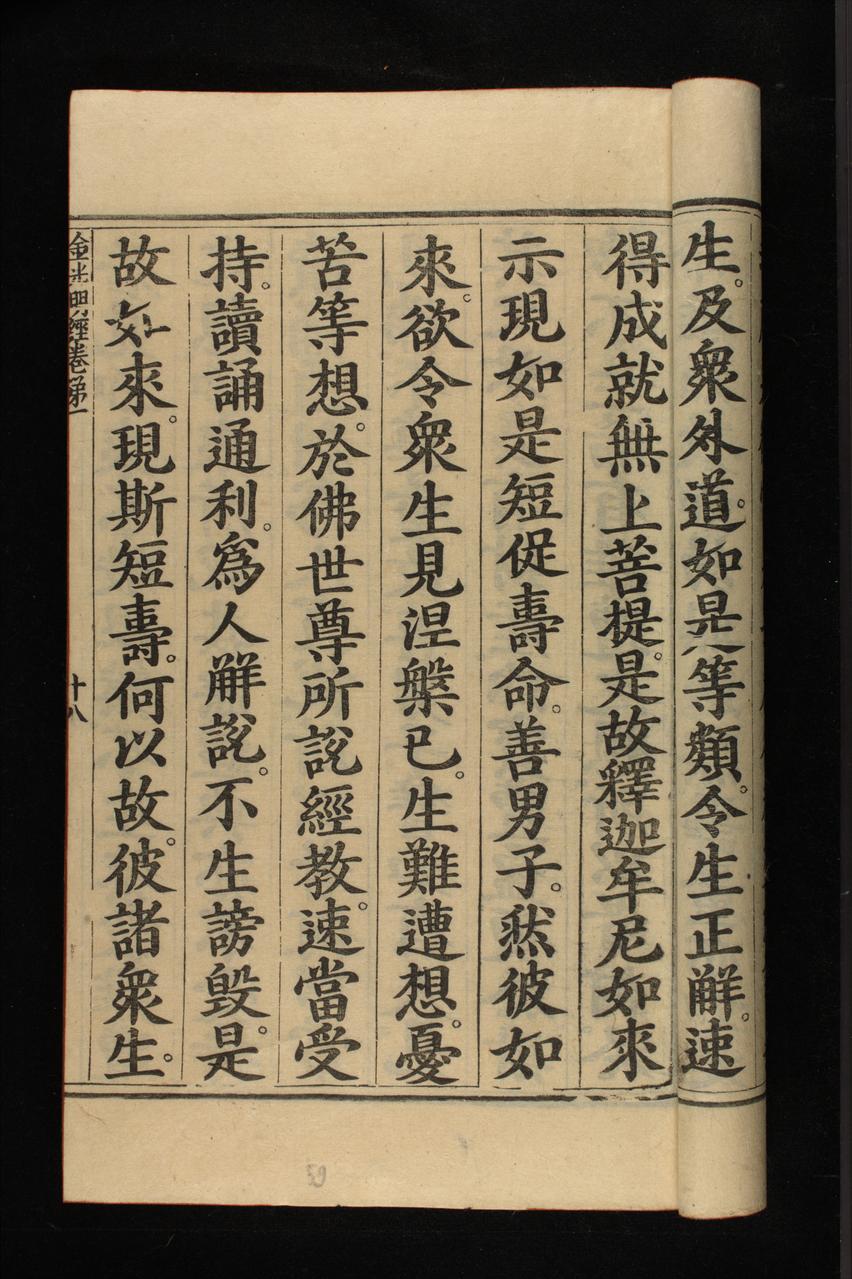 生。及衆外道。如是等類。令生正解。速
得成就無上菩提。是故釋迦牟尼如來
示現如是短促壽命。善男子。然彼如
來。欲令衆生見涅槃已。生難遭想。憂
苦等想。於佛世尊所說經教。速當受
持。讀誦通利。爲人解說。不生謗毀。是
故如來。現斯短壽。何以故。彼諸衆生。
金光明經卷第一
十八